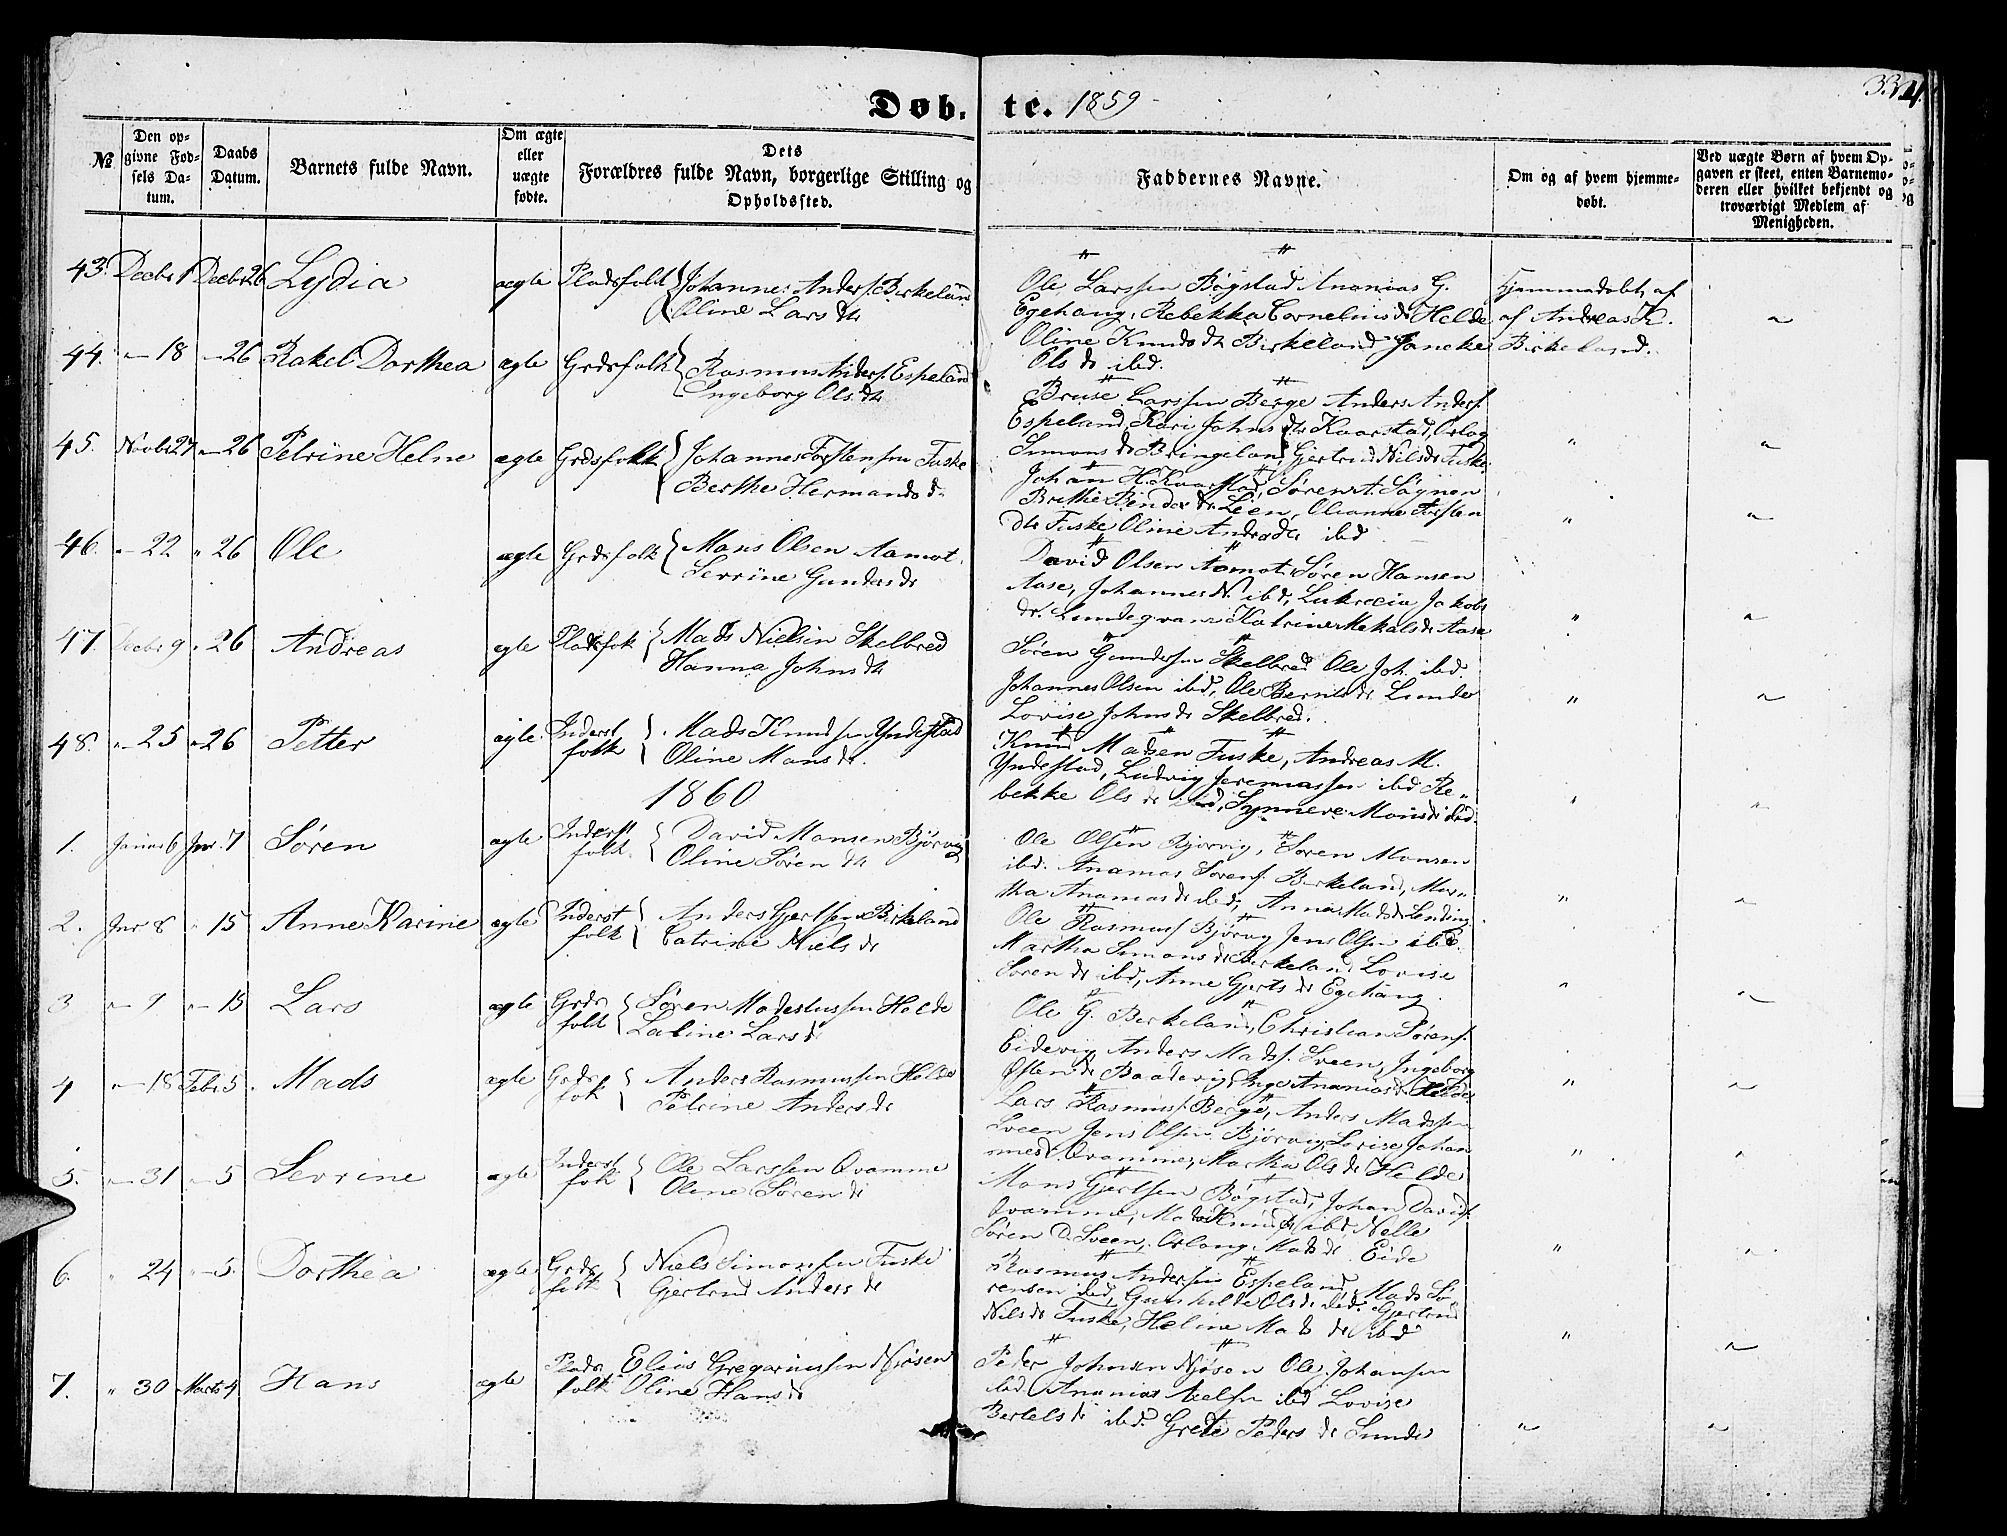 Døb. te. 1859
33
№ Den op- givne Fød- sels Da- tum. Daabs Datum. Barnets fulde Navn. Om ægte eller uægte fødte. Dets Forældres fulde Navn, borgerlige Stilling og Opholdssted. Faddernes Navne. Om og af hvem hjemme- døbt. Ved uægte Børn af hvem Op- gaven er skeet, enten Barnemo- deren eller hvilket bekjendt og troværdigt Medlem af Menigheden.
43. Decbr 1 Decbr 26 Lydia ægte Pladsfolk Johannes Anders. Birkeland
Oline Lars dr
Ole Larssen Bøgstad Ananias G.
Egehaug, Rebekka Cornelius dr Helde
Oline Knuds dr Birkeland Janeke
Ols dr ibd.
Hjemmedøbt af
af Andreas K.
Birkeland.
44. 18 26 Rakel Dorthea ægte Grdsfolk Rasmus Anders. Espeland
Ingeborg Ols dr
Bruse Larssen Berge Anders Anders.
Espeland, Kari Johns dr Kaarstad, Orlog
Simons dr Bringeland, Gjertrud Nils dr Fuske
45. Novbr 27 26 Petrine Helne ægte Grdsfolk Johannes Torstensen Fuske
Berthe Hermands dr
Johan H. Kaarstad, Søren A. Sögnen
Brithe Bendix dr Lien, Olianne Torsten
dr Fuske Oline Andrs dr ibd
46. 22 26 Ole ægte Grdsfolk Mons Olsen Aamot.
Serrine Gunders dr
David Olsen Aamot, Søren Hansen
Aase, Johannes N. ibd, Lukrecia Jakobs
dr. Lundegram Katrine Mekals dr Aase
47. Decbr 9 26 Andreas ægte Pladsfok Mads Nielsen Skelbred
Hanna Johns dr
Søren Gundersen Skelbred Ole Joh. ibd.
Johannes Olsen ibd, Ole Bernts dr Lunde
Lovise Johns dr Skelbred.
48. 25 26 Petter ægte Inderst folk Mads Knudsen Yndestad
Oline Mons dr.
Knud Madsen Fuske, Andreas M.
Yndestad, Ludvig Jeremiassen ibd Re-
bekke Ols dr ibd, Synneve Mons dr ibd.
1860
1. Januar 6 Jnr. 7 Søren ægte Inderst folk David Monsen Bjørvig
Oline Søren dr
Ole Olsen Bjørvig, Søren Monsen
ibd. Ananias Sørens. Birkeland, Mar-
tha Ananias dr ibd, Anna Mads dr Lending
2. Jnr 8 15 Anne Karine ægte Inderst folk Anders Gjertsen Birkeland
Catrine Niels dr
Ole Rasmus. Bjørvig Jens Olsen ibd.
Martha Simons dr Birkeland Lovise
Søren dr ibd, Anne Gjerts dr Egehaug.
3 9 15 Lars ægte Grds folk Søren Modestussen Helde
Laline Lars dr
Ole G. Birkeland, Christian Sørens.
Eidevig, Anders Mads. Sveen, Ingeborg
Østen dr Baadevig, Inge Ananias dr Helde
4 18 Febr. 5. Mads ægte Grds fok Anders Rasmussen Helde
Petrine Anders dr
Lars Rasmus. Berge, Anders Madssen
Sveen Jens Olsen Bjørvig, Lovise Johan
nes dr Qvamme, Martha Ols dr Helde
5. 31 5 Serrine ægte Inderst fok Ole Larssen Qvamme
Oline Søren dr
Mons Gjertsen Bøgstad, Johan Davids.
Qvamme, Mads Knuds. ibd, Nelle
Søren D. Sveen, Orlong Mads dr Eide
6. 24 5. Dorthea ægte Grds folk Niels Simonsen Fuske
Gjertrud Anders dr
Rasmus Andersen Espeland, Mads Sø
rensen ibd, Gunhilde Ols dr ibd. Gjertrud
Nils dr Fuske, Heline Mads dr ibd
7. 30 Marts 4 Hans ægte Plads folk Elias Gregoriussen Njøsen
Oline Hans dr
Peder Johnsen Njøsen Ole Johansen
ibd. Ananias Axelsen ibd Lovise
Bertels dr ibd. Grete Peders dr Lunde